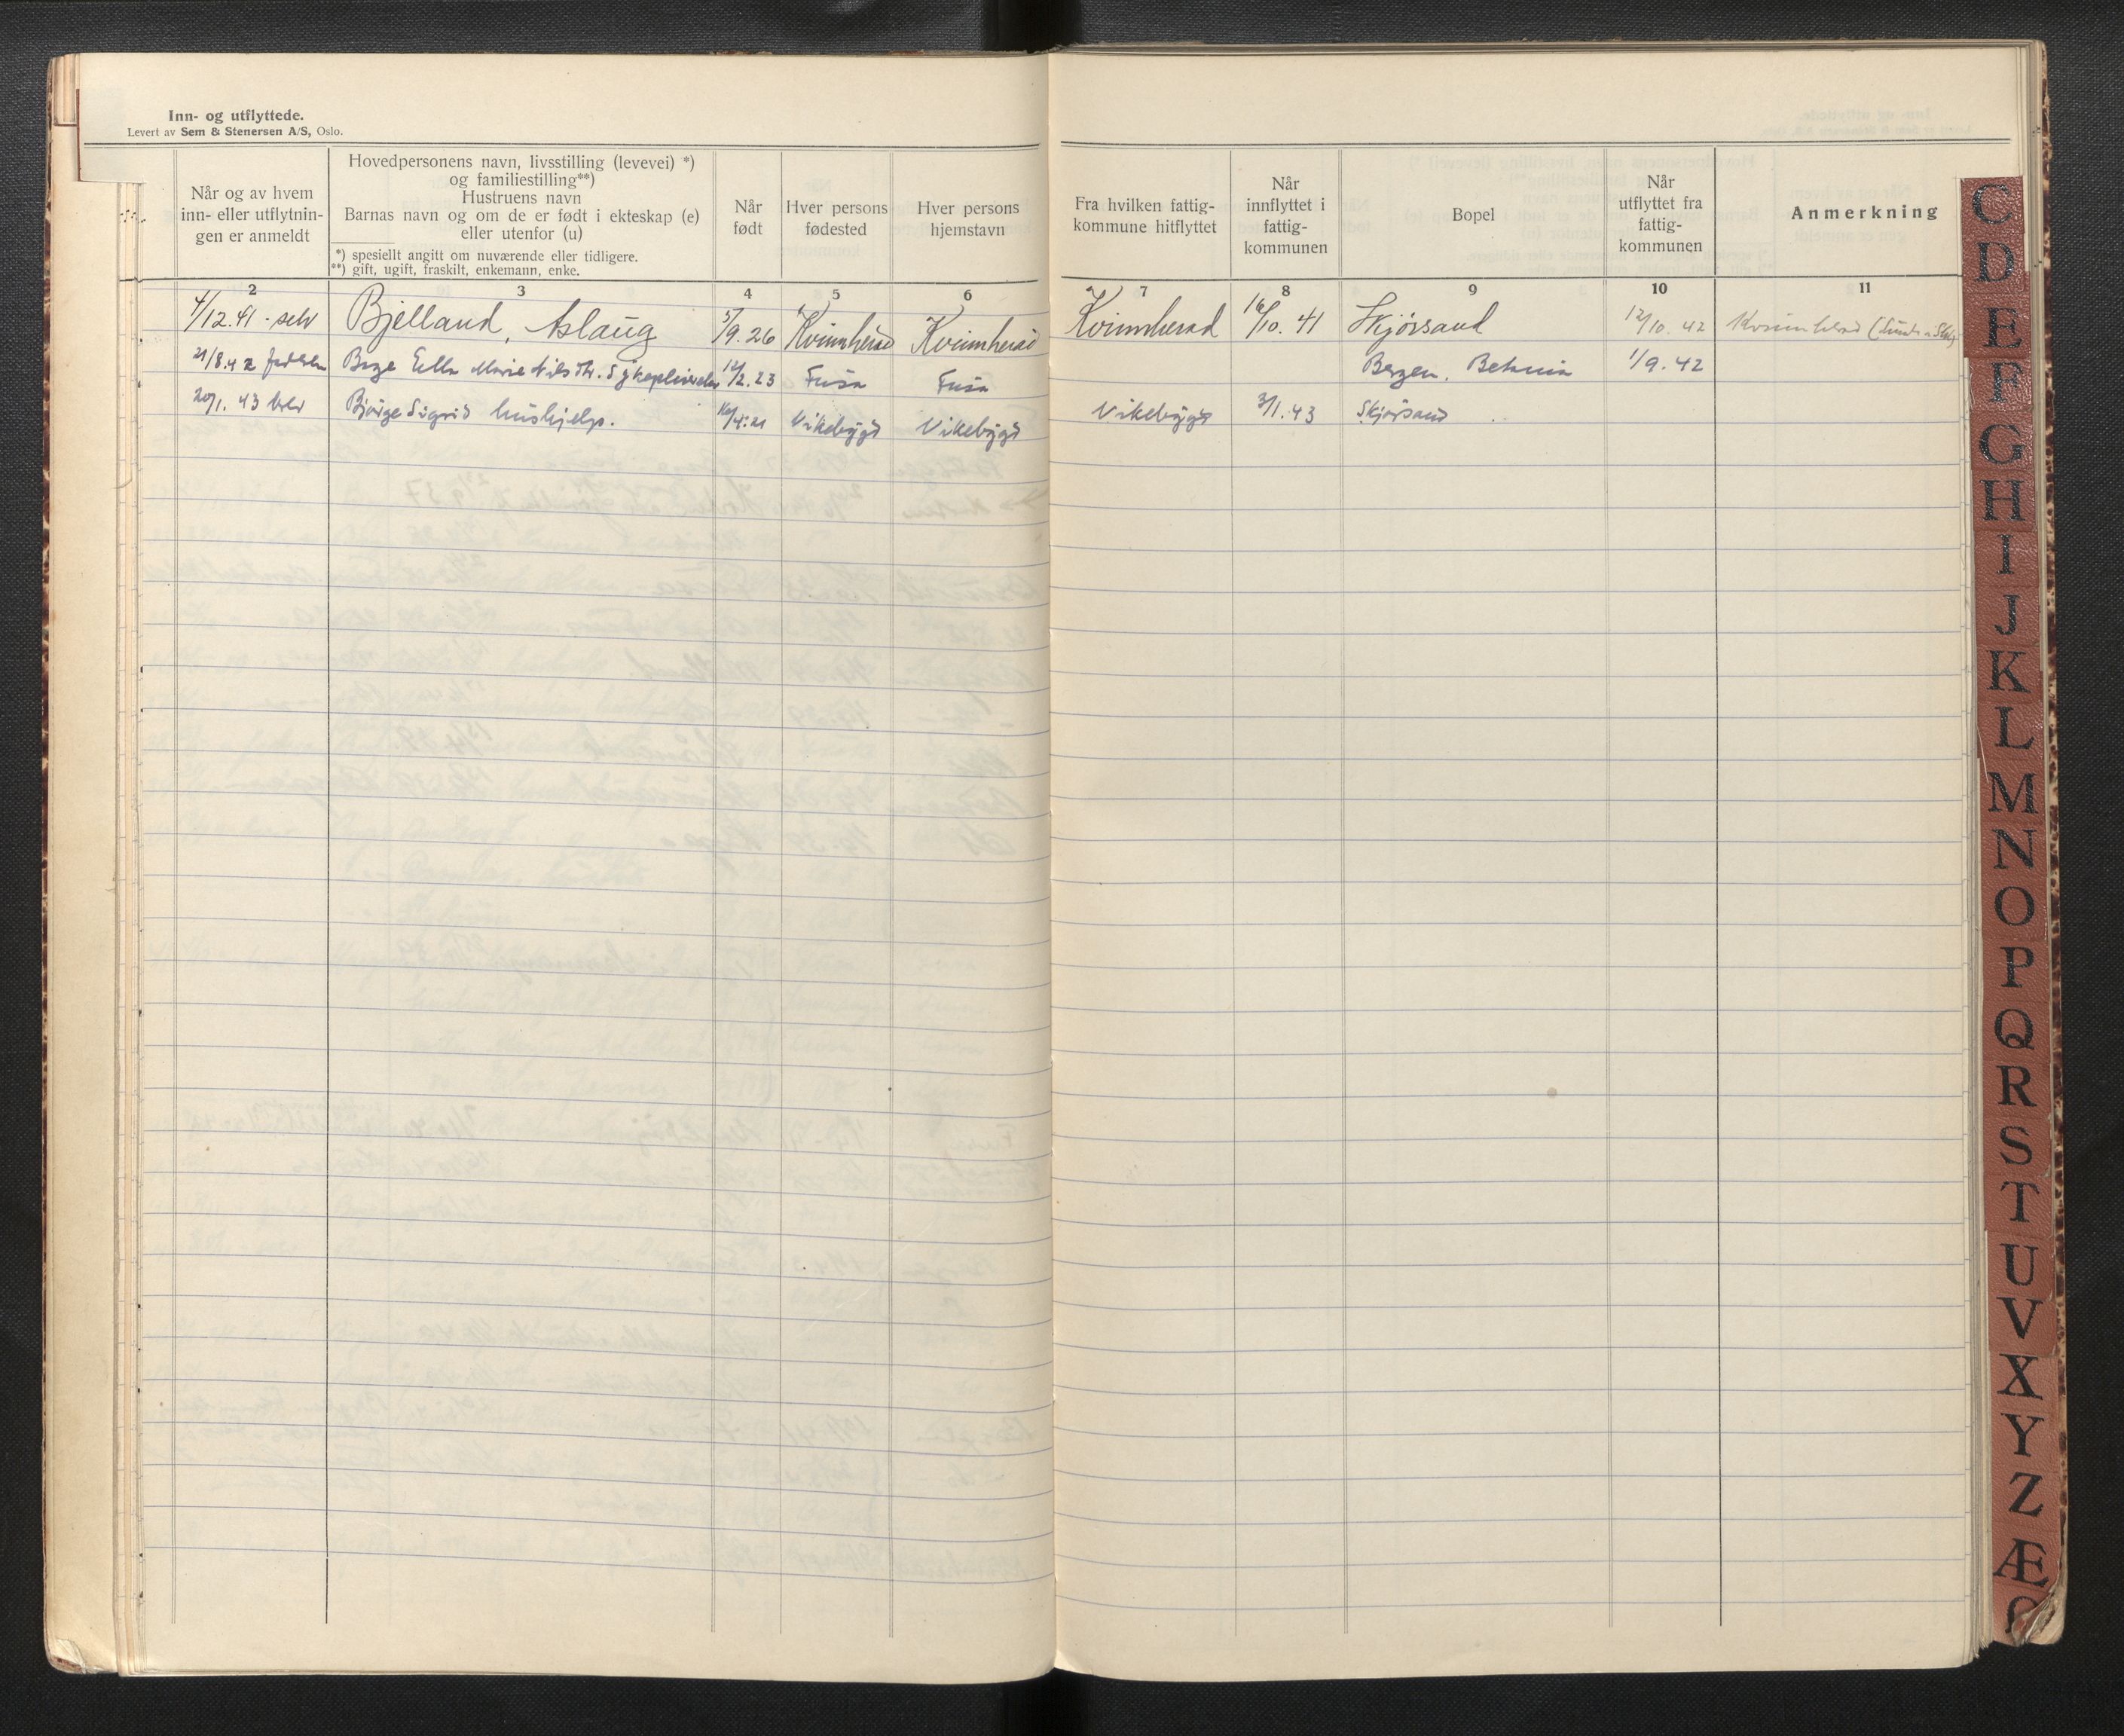 Inn- og utflyttede.
Levert av Sem & Stenersen A/S, Oslo.
Når og av hvem
inn- eller utflytnin-
gen er anmeldt
Hovedpersonens navn, livsstilling (levevei) *)
og familiestilling**)
Hustruens navn
Barnas navn og om de er født i ekteskap (e)
eller utenfor (u)
*) spesiellt angitt om nuværende eller tidligere.
**) gift, ugift, fraskilt, enkemann, enke.
Når
født
Hver persons
fødested
Hver persons
hjemstavn
Fra hvilken fattig-
kommune hitflyttet
Når
innflyttet i
fattig-
kommunen
Bopel
Når
utflyttet fra
fattig-
kommunen
Anmerkning
2 3 4 5 6 7 8 9 10 11
4/12.41 - selv Bjelland, Aslaug 5/9.26 Kvinnherad Kvinnherad Kvinnherad 16/10.41 Skjørsand 12/10.42 Kvinnherad
21/8.42 Ella Marie Nils 12/2.23 Fusa Fusa Bergen, Betania 1/9.42
20/1.43 Bjørge Sigrid hushjelp. Vikebygd Vikebygd Vikebygd 3/1.43 Skjørsand
C
D
E
F
G
H
I
J
K
L
M
N
O
P
Q
R
S
T
U
V
X
Y
Z
Æ